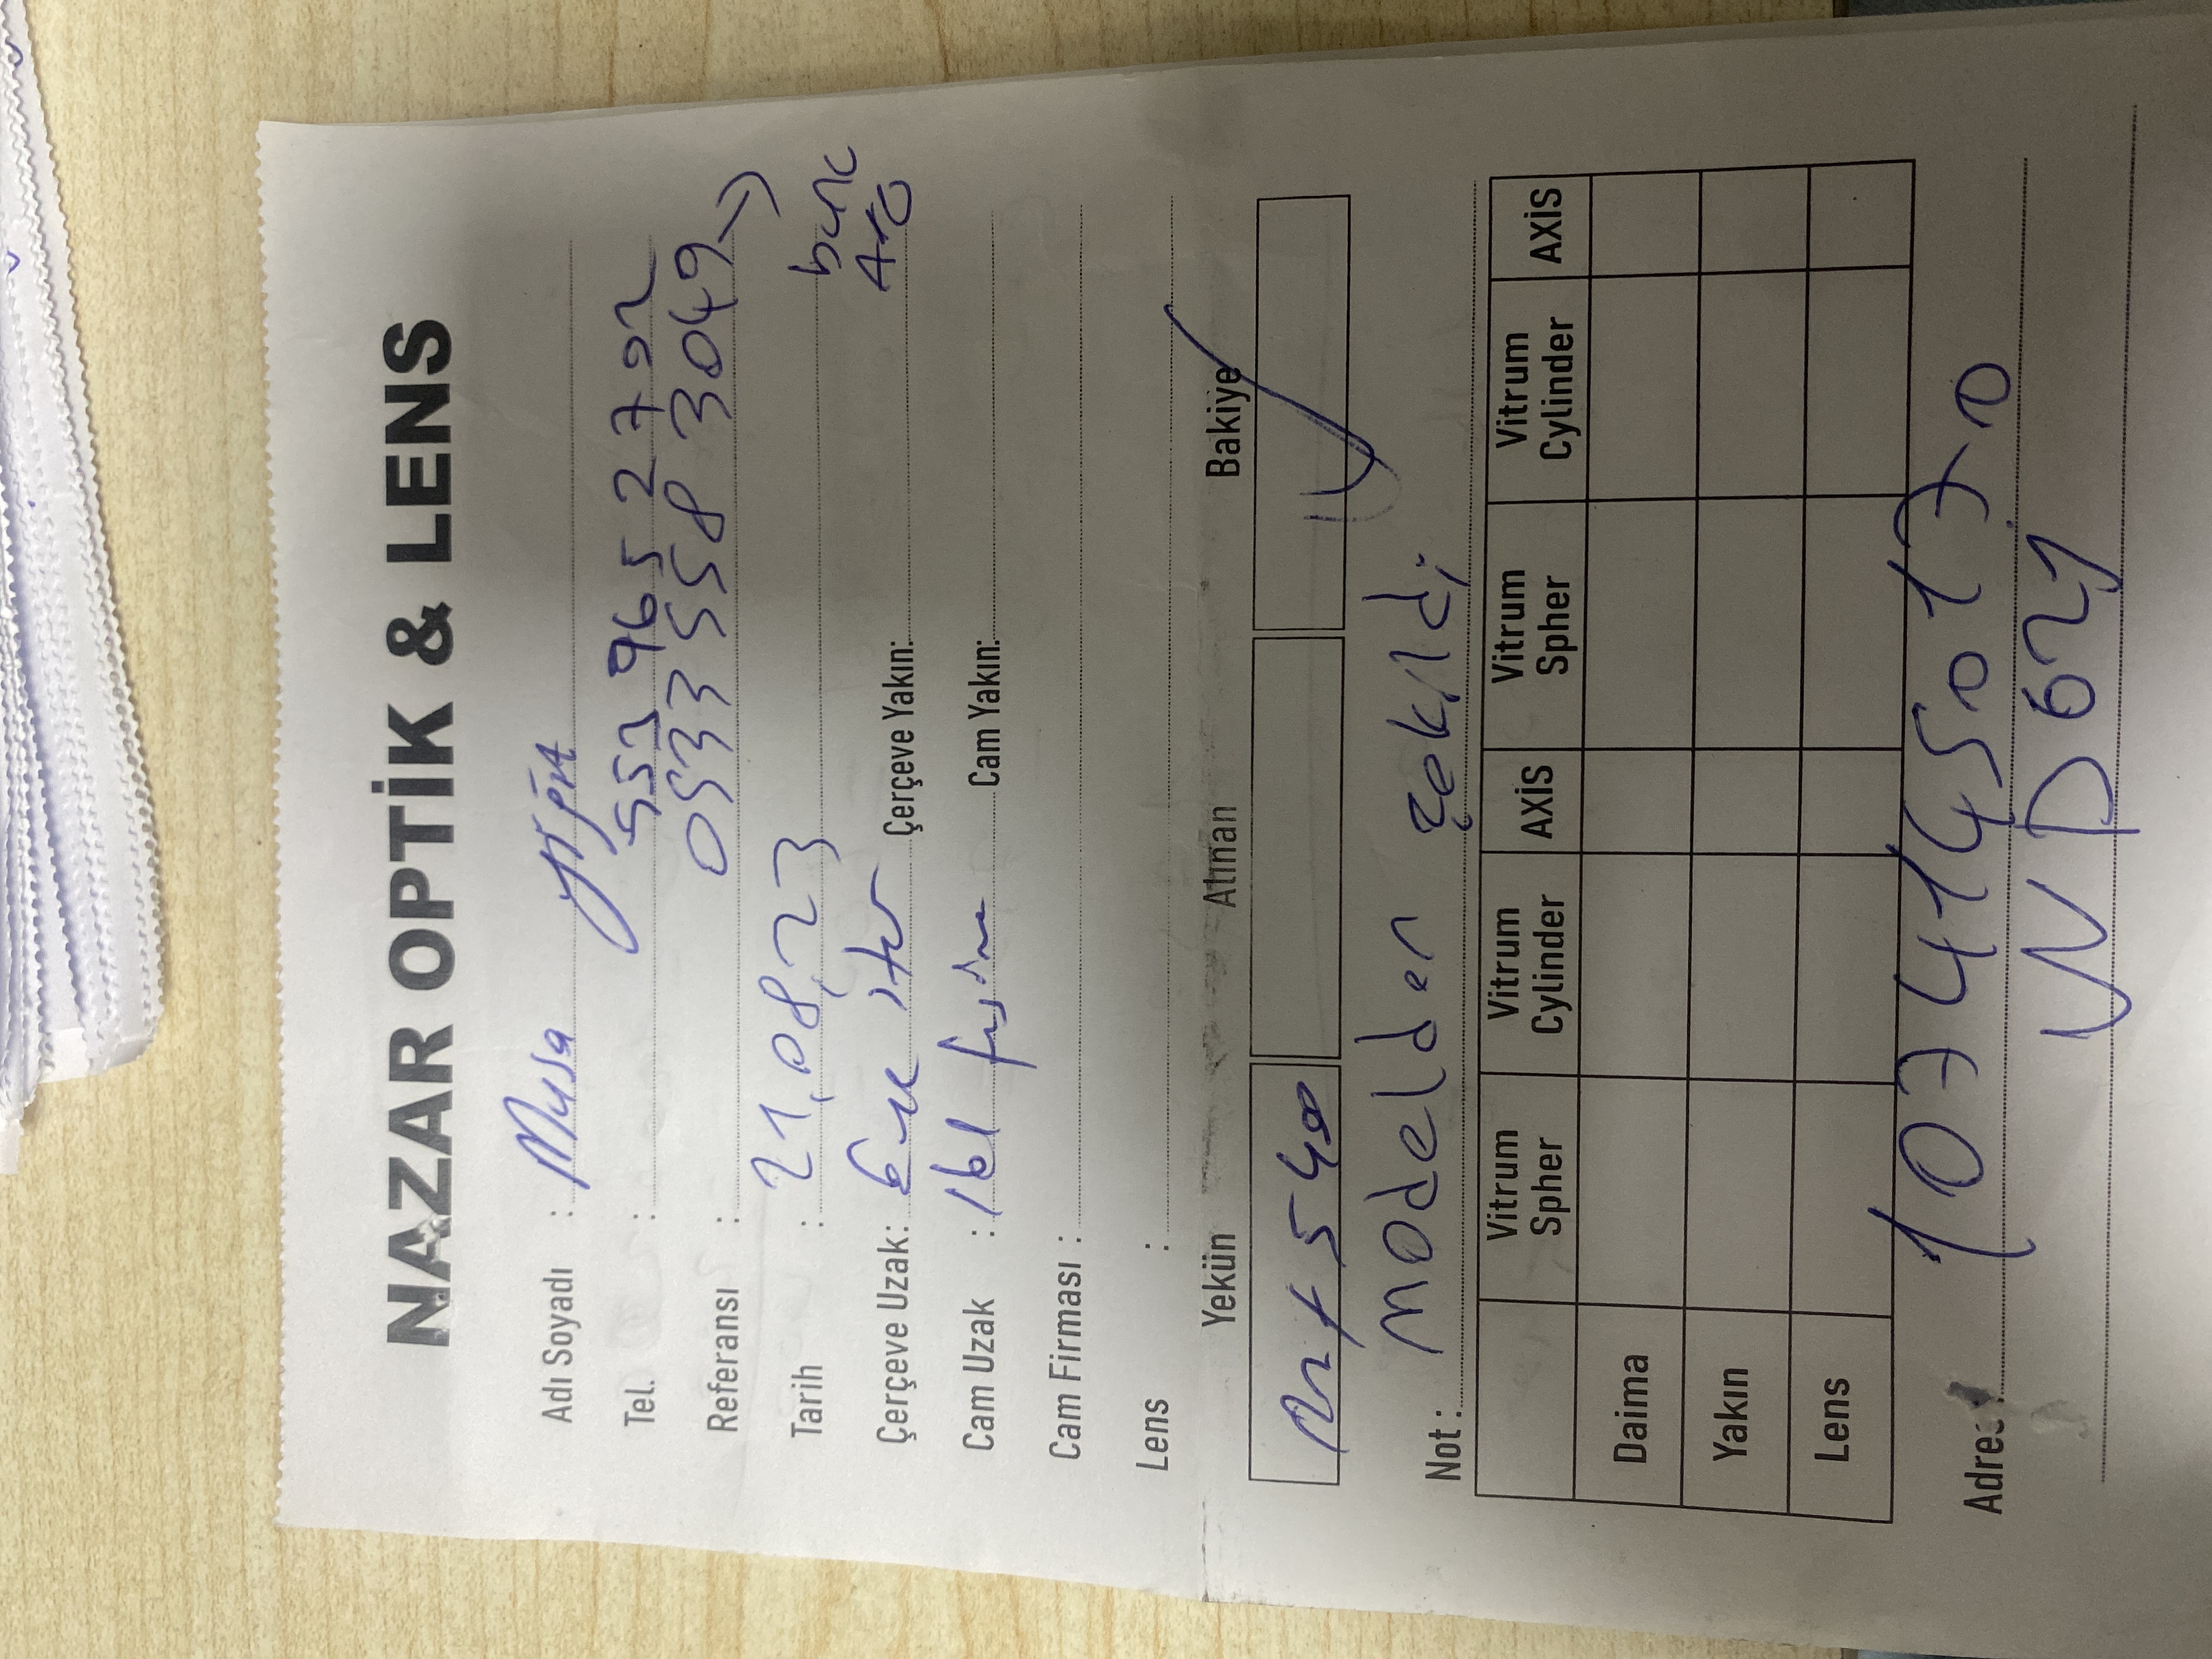 NAZAR OPTİK & LENS
Adı Soyadı : Musa Yiğit
Tel. : 553 965 2792
Referansı : 0533 558 3049
Tarih : 21,08,23
bunu
Ara
Çerçeve Uzak: Çerçeve Yakın:
Cam Uzak : Cam Yakın:
Cam Firması :
Lens :
Yekün Alınan Bakiye
540
Not : modelden çekildi
Vitrum Spher Vitrum Cylinder AXİS Vitrum Spher Vitrum Cylinder AXİS
Daima
Yakın
Lens
Adres : 10741450170
WD621